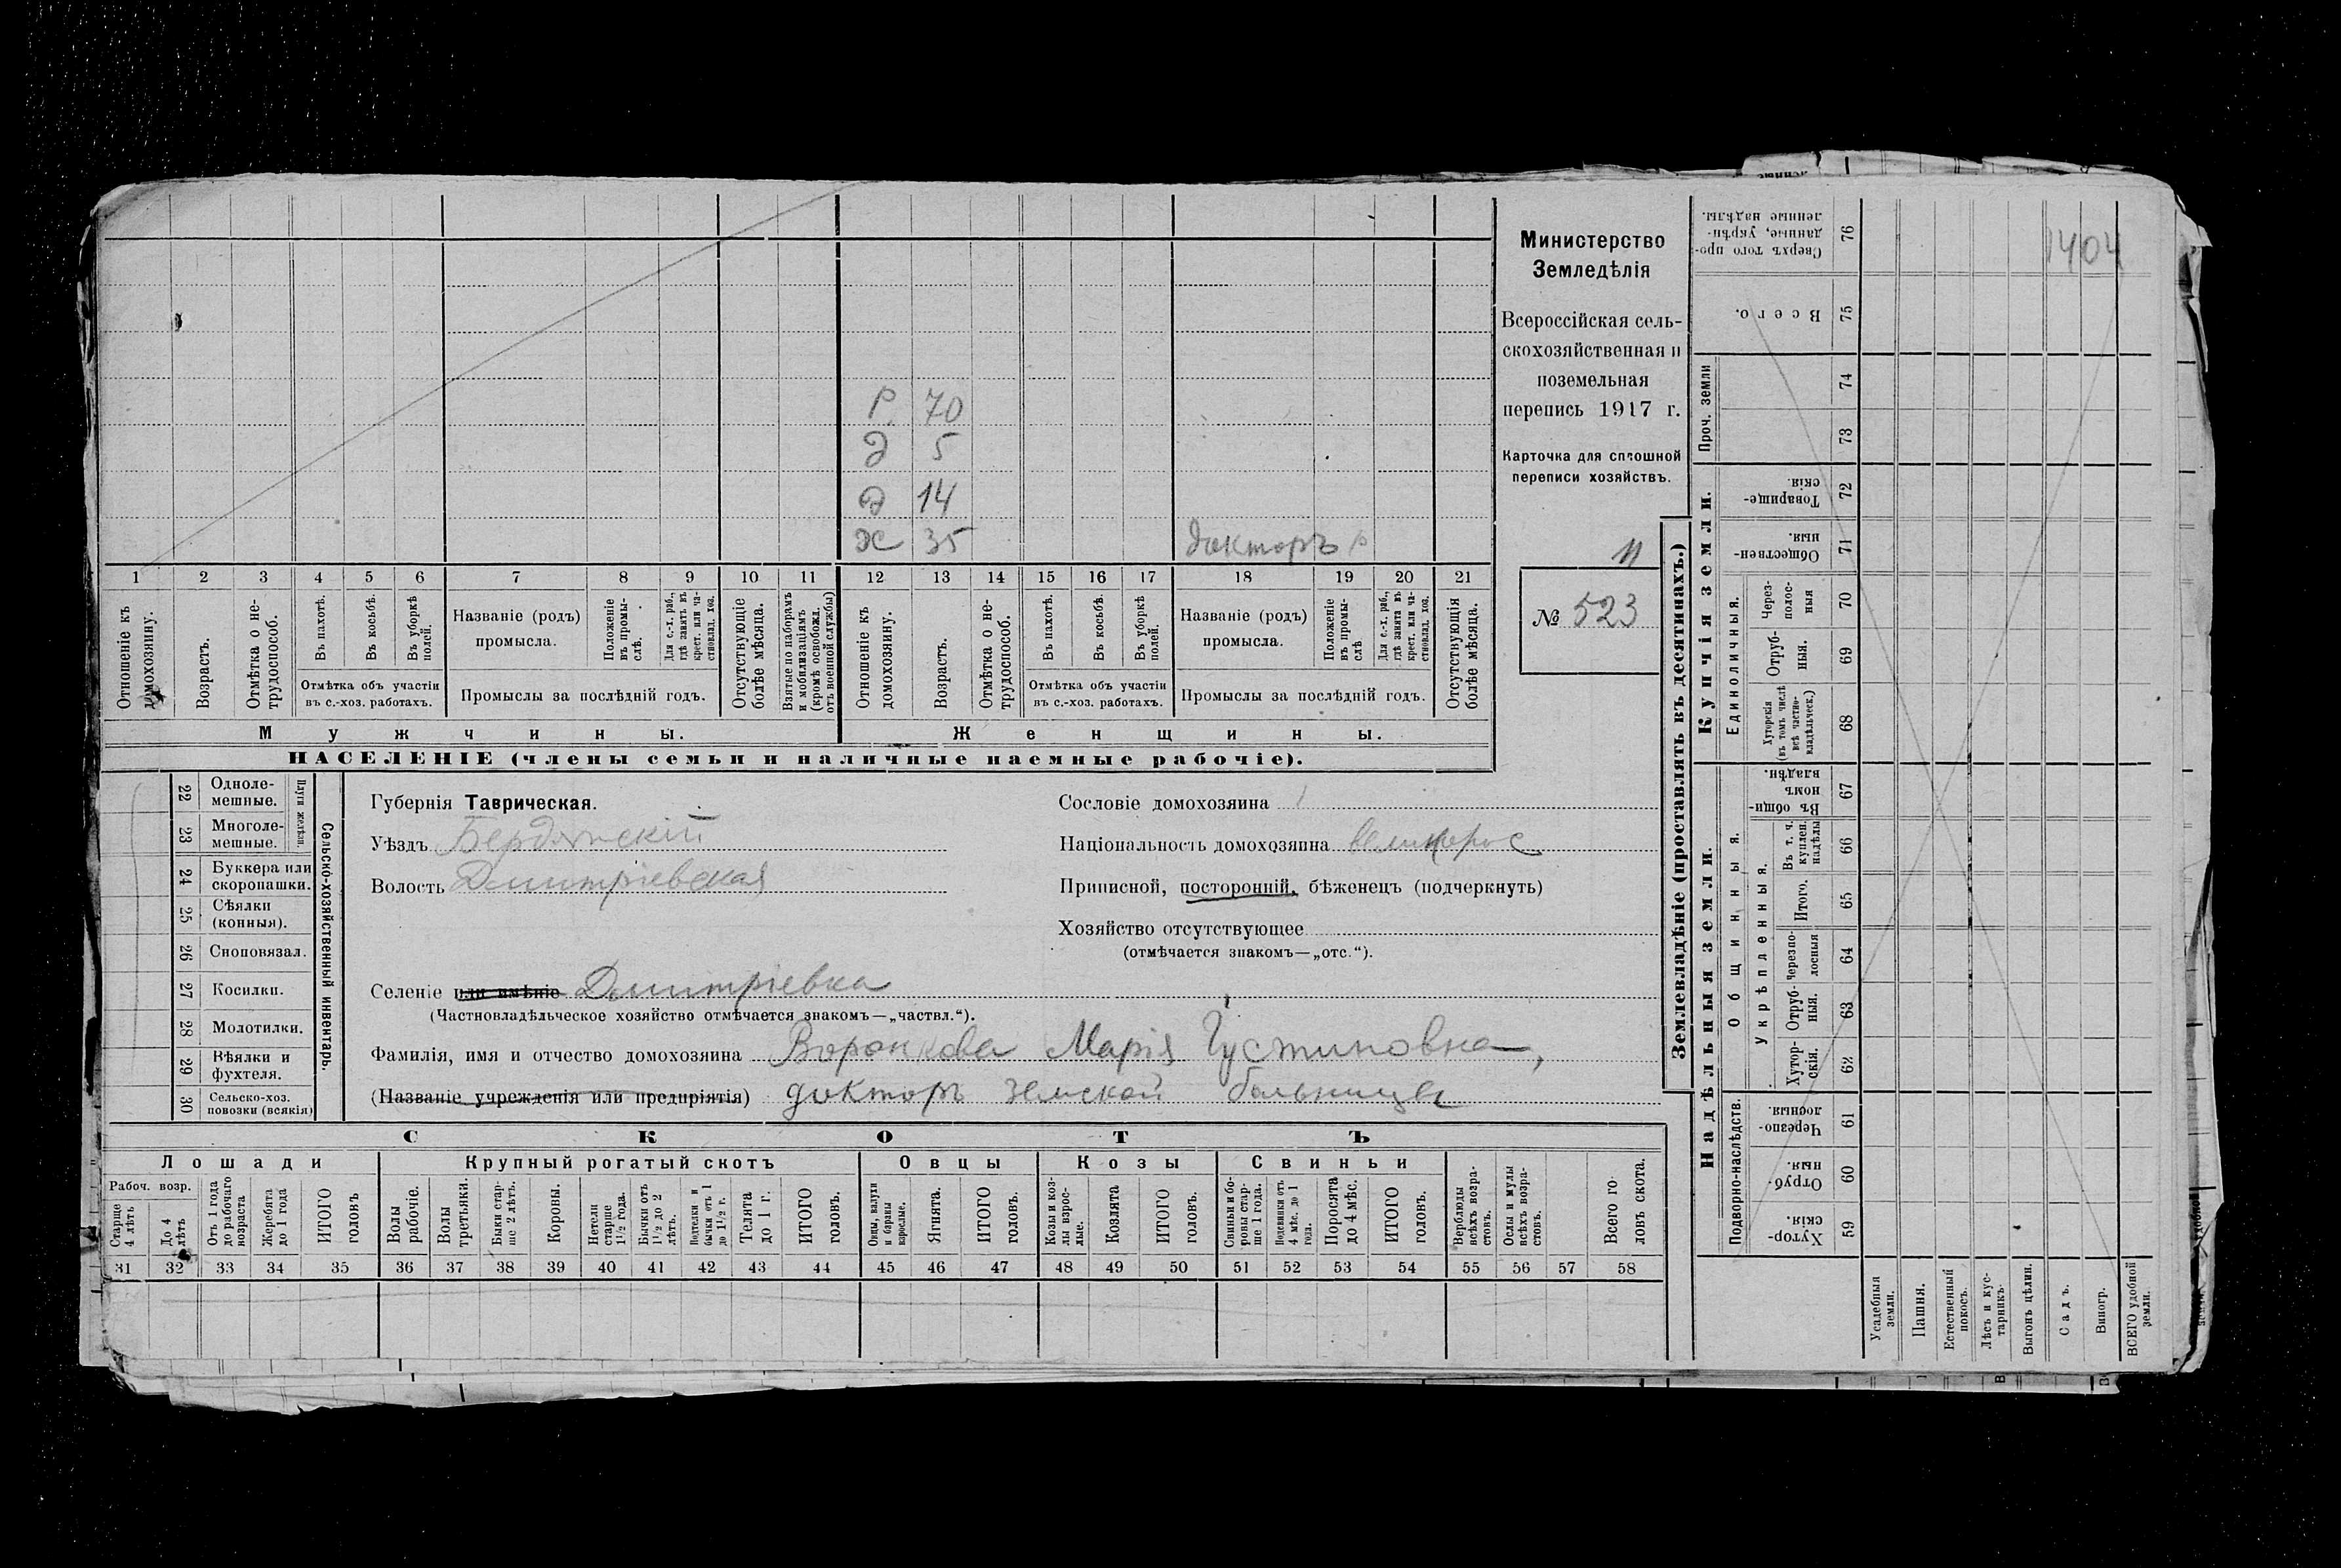 Министерство
Земледѣлія
Всероссійская сель-
скохозяйственная и
поземельная
перепись 1917 г.
Карточка для сплошной
переписи хозяйствъ.
11
№ 523
1404
Р. 70
Д 5
Д 14
Ж 35 докторъ р
1 2 3 4 5 6 7 8 9 10 11 12 13 14 15 16 17 18 19 20 21
Отношеніе къ домохозяину.
Возрастъ.
Отмѣтка о не-трудоспособ.
Въ пахотѣ.
Въ косьбѣ.
Въ уборкѣ полей.
Отмѣтка объ участіи
въ с.-хоз. работахъ.
Названіе (родъ)
промысла.
Положеніе въ промы-слѣ.
Для с.-х. раб., гдѣ занятъ въ крест. или ча-стновлад. хоз.
Промыслы за послѣдній годъ.
Отсутствующіе болѣе мѣсяца.
Взятые по наборамъ и мобилизаціямъ (кромѣ освобожд. отъ военной службы)
Отношеніе къ домохозяину.
Возрастъ.
Отмѣтка о не-трудоспособ.
Въ пахотѣ.
Въ косьбѣ.
Въ уборкѣ полей.
Отмѣтка объ участіи
въ с.-хоз. работахъ.
Названіе (родъ)
промысла.
Положеніе въ промы-слѣ
Для с.-х. раб., гдѣ занятъ въ крест. или ча-стновлад. хоз.
Промыслы за послѣдній годъ.
Отсутствующія болѣе мѣсяца.
Мужчины. Женщины.
НАСЕЛЕНІЕ (члены семьи и наличные наемные рабочіе).
Сельско-хозяйственный инвентарь.
Плуги желѣзн.
22 Одноле-мешные.
23 Многоле-мешные.
24 Буккера или скоропашки.
25 Сѣялки (конныя).
26 Сноповязал.
27 Косилки.
28 Молотилки.
29 Вѣялки и фухтеля.
30 Сельско-хоз. повозки (всякія)
Губернія Таврическая.
Уѣздъ Бердянскій
Волость Дмитріевская
Сословіе домохозяина
Національность домохозяина великорос
Приписной, посторонній, бѣженецъ (подчеркнуть)
Хозяйство отсутствующее
(отмѣчается знакомъ—„отс.“).
Селеніе или имѣніе Дмитріевка
(Частновладѣльческое хозяйство отмѣчается знакомъ—„частвл.“).
Фамилія, имя и отчество домохозяина Воронкова Марія Густиновна,
(Названіе учрежденія или предпріятія) докторъ земской больницы
СКОТЪ
Лошади Крупный рогатый скотъ Овцы Козы Свиньи
Рабоч. возр.
Старше 4 лѣтъ
До 4 лѣтъ
Отъ 1 года до рабочаго возраста
Жеребята до 1 года
ИТОГО головъ
Волы рабочіе.
Волы третьяки.
Быки стар-ше 2 лѣтъ.
Коровы.
Нетели старше 1½ года.
Бычки отъ 1½ до 2 лѣтъ.
Подтелки и бычки отъ 1 до 1½ г.
Телята до 1 г.
ИТОГО головъ.
Овцы, валухи и бараны взрослые.
Ягнята.
ИТОГО головъ.
Козы и коз-лы взрос-лые.
Козлята
ИТОГО головъ.
Свиньи и бо-ровы стар-ше 1 года.
Подсвинки отъ 4 мѣс. до 1 года.
Поросята до 4 мѣс.
ИТОГО головъ.
Верблюды всѣхъ возра-стовъ.
Ослы и мулы всѣхъ возра-стовъ.
Всего го-ловъ скота.
31 32 33 34 35 36 37 38 39 40 41 42 43 44 45 46 47 48 49 50 51 52 53 54 55 56 57 58
Землевладѣніе (проставлять въ десятинахъ.)
Купчія земли.
Надѣльныя земли.
Сверхъ того про-данные, укрѣп-ленные надѣлы. 76
Всего. 75
Проч. земли
74
73
Товарище-скія. 72
Обществен-ныя. 71
Единоличныя.
Через-полос-ныя 70
Отруб-ныя. 69
Хуторскія (въ томъ числѣ всѣ частно-владѣльческ.) 68
Общинныя.
Въ общин-номъ владѣн. 67
Укрѣпленныя.
Въ т. ч. куплен. надѣлы 66
Итого. 65
Черезпо-лосныя 64
Отруб-ныя. 63
Хутор-скія. 62
Подворно-наслѣдств.
Черезпо-лосныя. 61
Отруб-ныя. 60
Хутор-скія. 59
Усадебныя земли.
Пашня.
Естественный покосъ.
Лѣсъ и кус-тарникъ.
Выгонъ цѣлин.
Садъ.
Виногр.
ВСЕГО удобной земли.